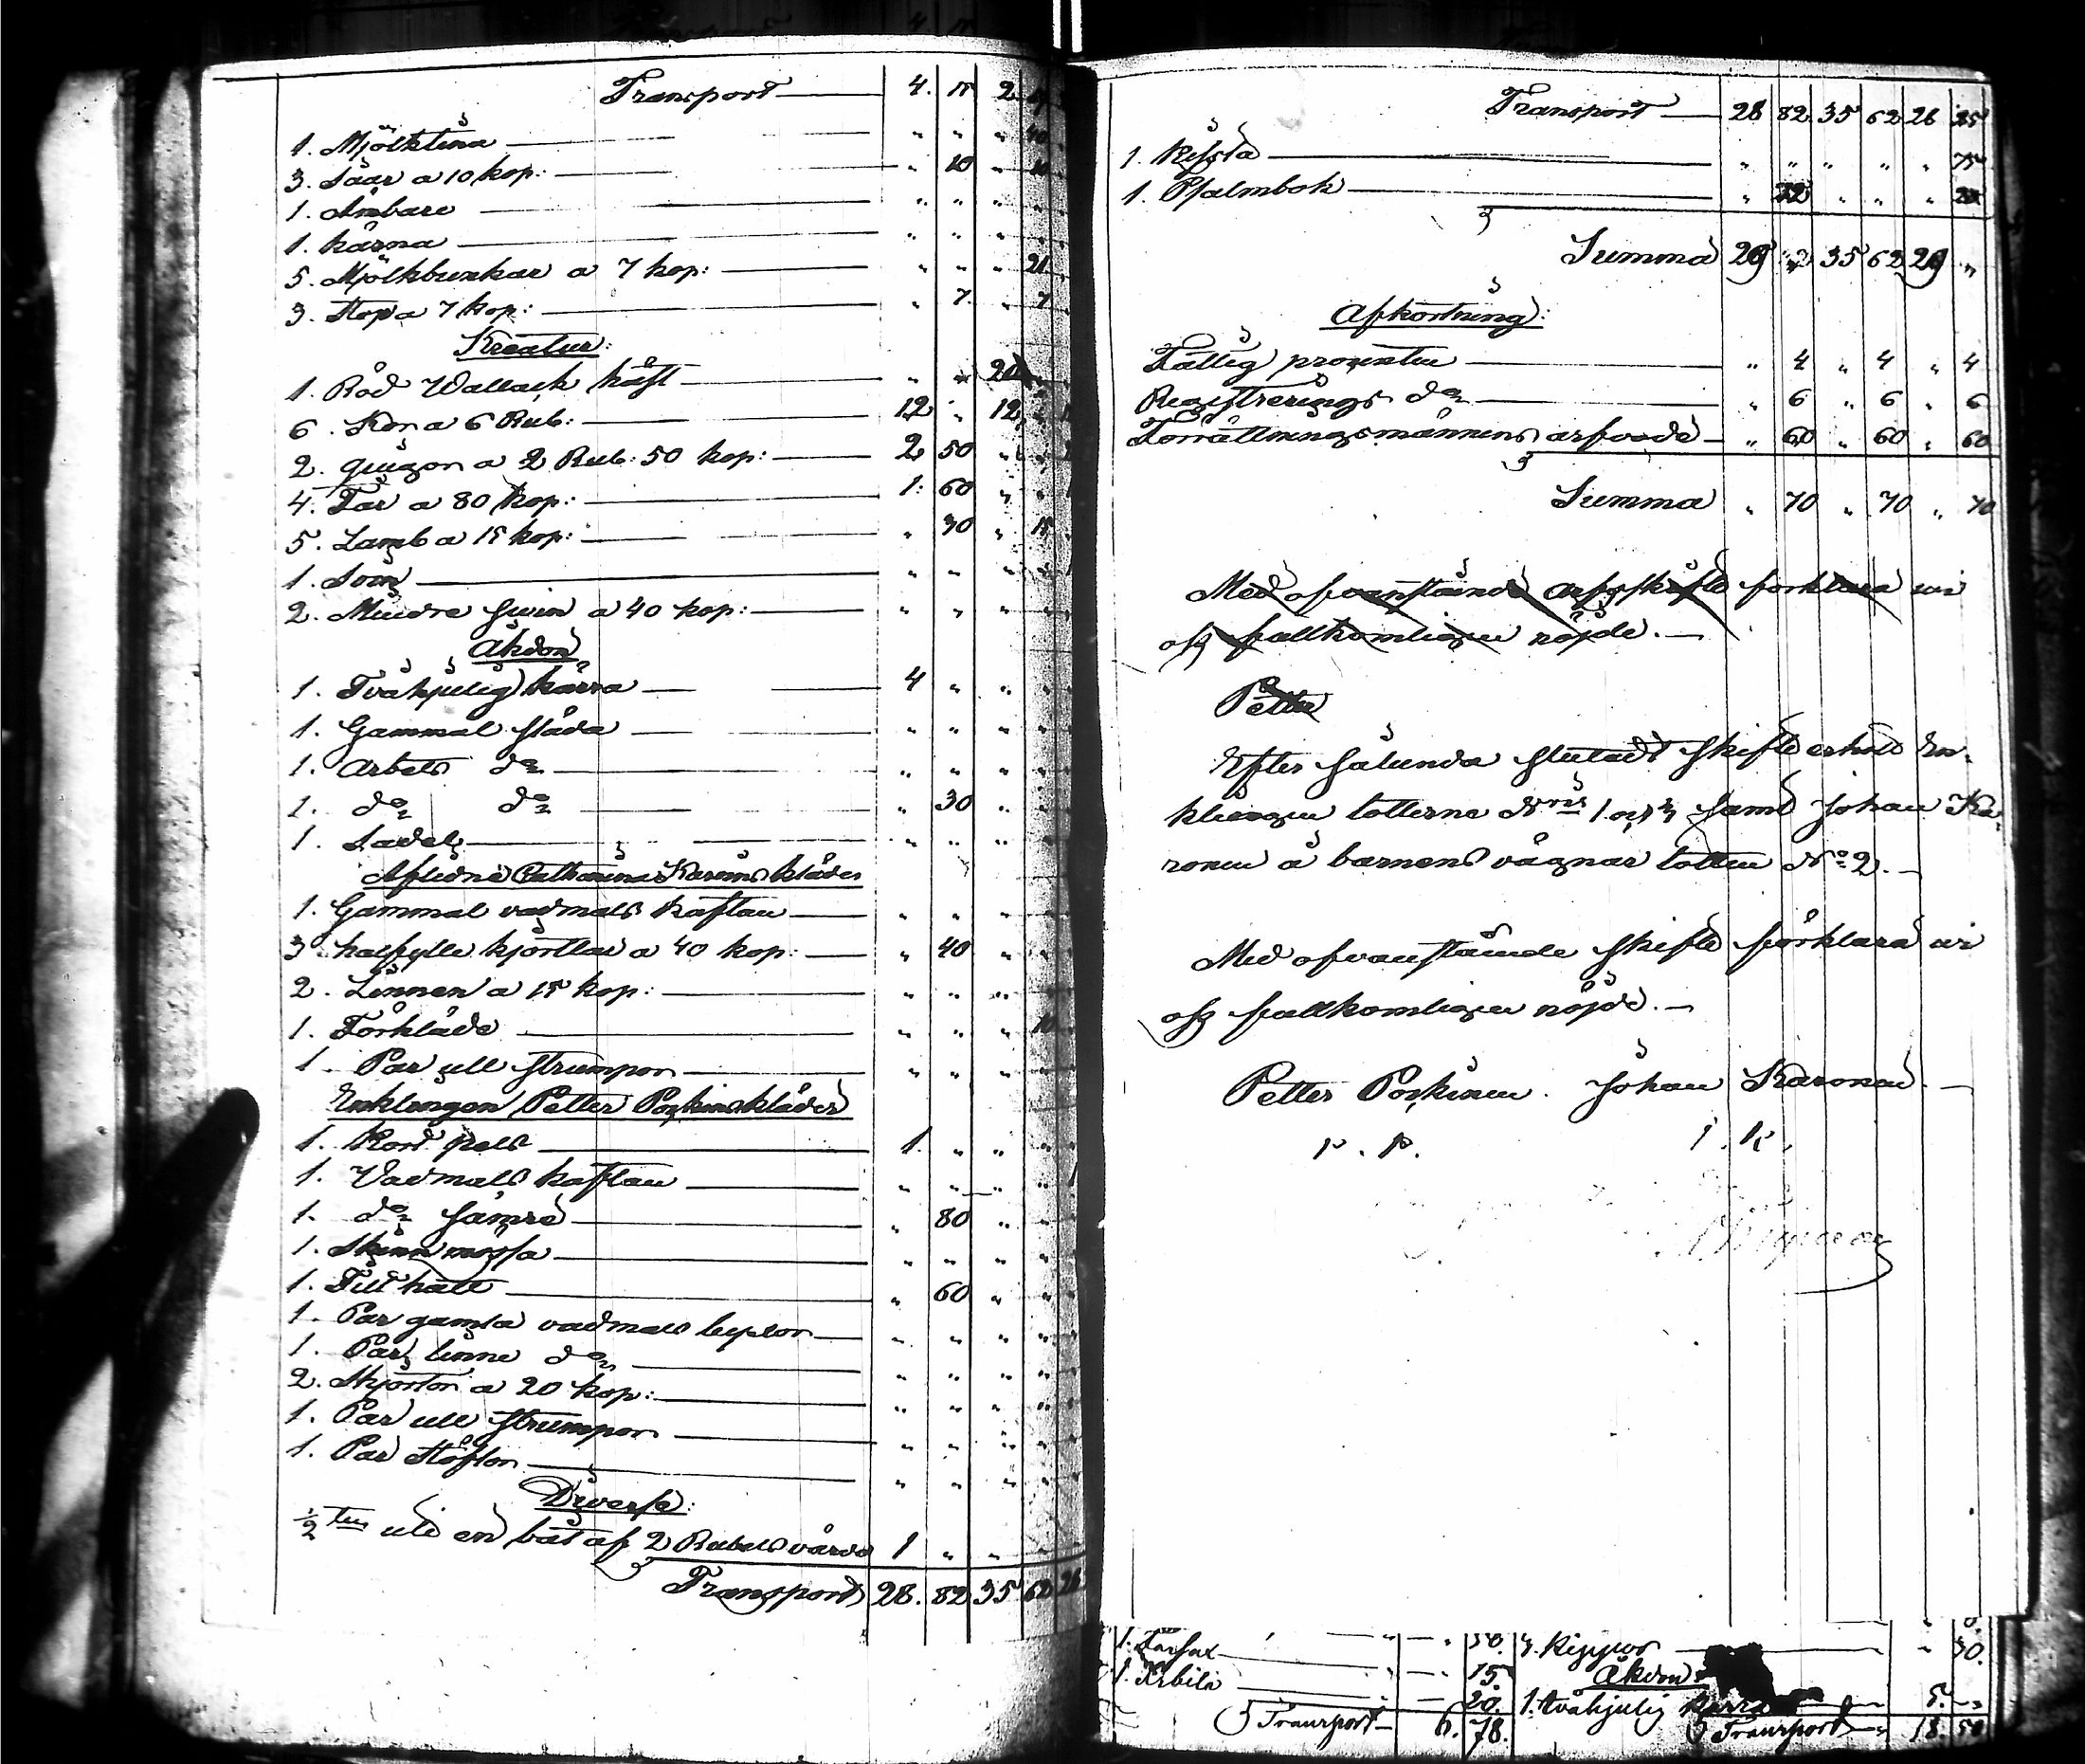 Transport 4. 15 2
1. Mjölktina " " " 40
3. Såar a 10 kop: " 10 " 10
1. Ämbare " " " "
1. kärna " " " "
5. Mjölkbunkar a 7 kop: " " " 21
3. Stop a 7 kop: " 7. " 7
Kreatur:
1. Röd Wallack häst " " 20
6. Kor a 6 Rub: 12 " 12 "
2. quigor a 2 Rub: 50 kop: 2 50 " "
4. Får a 80 kop: 1: 60 " "
5. Lamb a 15 kop: " 30 " 15
1. So " " " "
2. Mindre Svin a 40 kop: " " " "
Åkdon
1. Tvåhjulig kärra 4 " " "
1. Gammal släda " " " "
1. Arbets do " " " "
1. do do " 30 " "
1. Sadel " " " "
Aflidne Catharina Karoins kläder
1. Gammal vadmals kaftan " " " "
3 halfylle kjortlar a 40 kop: " 40 " "
2. Linnen a 15 kop: " " " "
1. Förkläde " " " 10
1. Par ull strumpor " " " "
Enklingen Petter Poikins kläder
1. Kort pels 1. " " "
1. Vadmals kaftan " " " "
1. do sämre " 80 " "
1. Skinn mössa " " " "
1. Filt hatt " 60 " "
1. Par gamla vadmals byxor " " " "
1. Par linne do " " " "
2. Skjortor a 20 kop: " " " "
1. Par ull strumpor " " " "
1. Par stöflor " " " "
Diverse:
½ ten uti en båt af 2 Rubels värde 1 " " "
Transport 28. 82 35 62 26
Transport 28 82 35 62 26 25
1. Kista " " " " " 75
1. Psalmbok " " " "
Summa 29 " 35 62 29 "
Afkortning:
Fattig procenten " 4 " 4 " 4
Registrerings do " 6 " 6 " 6
Förrättningsmännens arfvode " 60 " 60 " 60
Summa " 70 " 70 " 70
Med ofvanstående arfsskifte förklara wi
oss fullkomligen nöjde.
Petter
Efter sålunda slutadt skifte erhöll En-
klingen lotterne Nris 1 och 3 samt Johan Ka-
ronen å barnens vägnar lotten No 2.
Med ofvanstående skifte förklara wi
oss fullkomligen nöjde.
Petter Poikinen. Johan Karonen.
P. P. I. K.
1. 50. 3. Kippor " 30.
1. 15. Åkdon
20. 1. tvåhjulig kärra 5. "
Transport 6. 78. Transport 18. 50